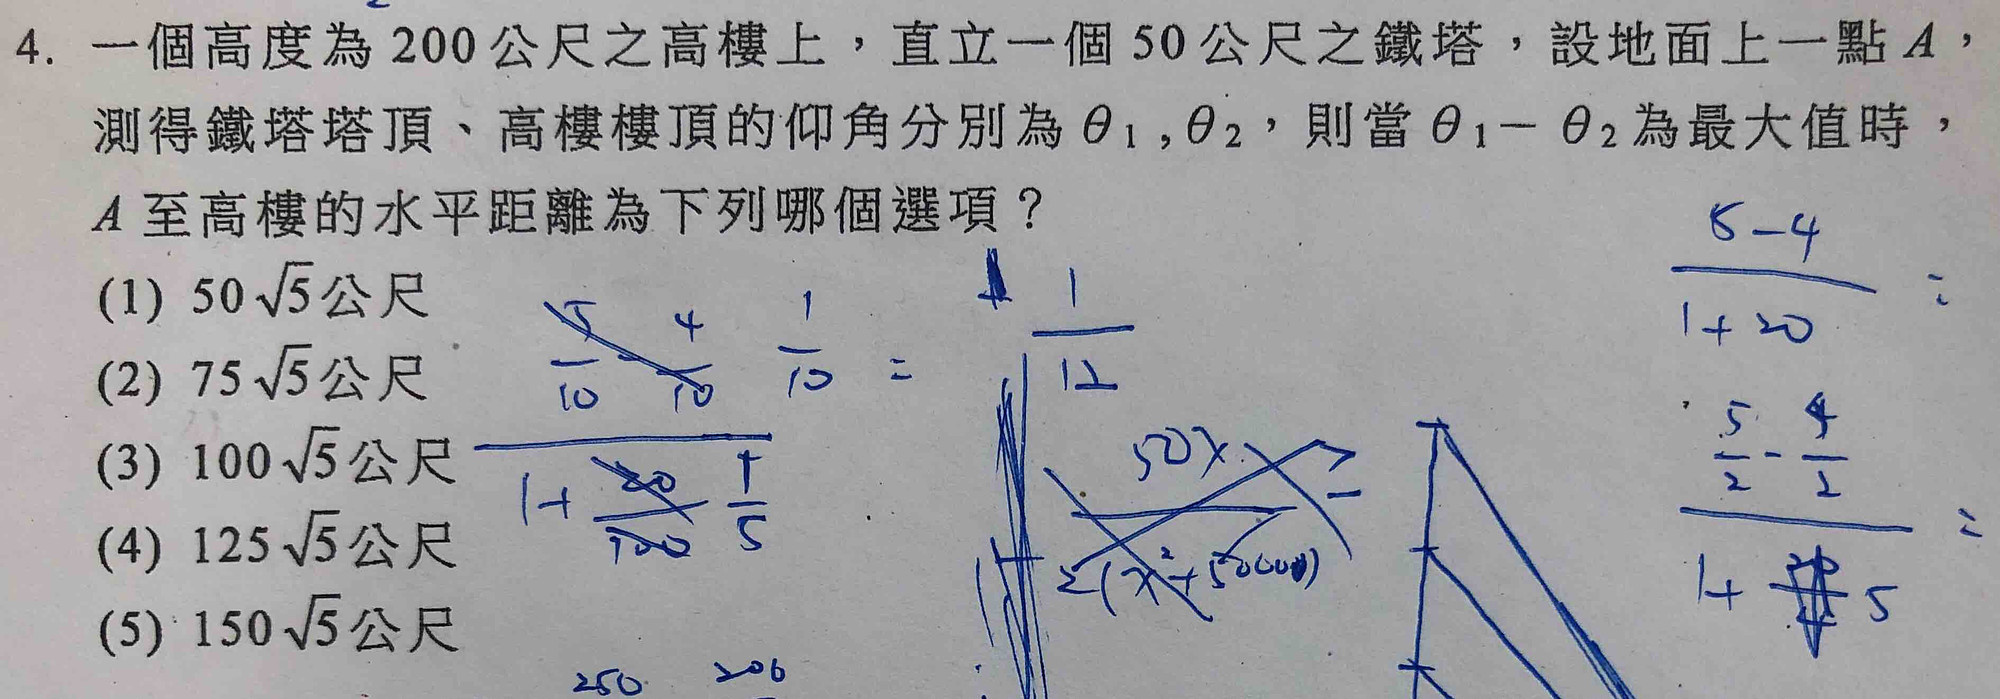 4. 一個高度為 200 公尺之高樓上，直立一個 50 公尺之鐵塔，設地面上一點 A，
測得鐵塔塔頂、高樓樓頂的仰角分別為 θ1 , θ2，則當 θ1 − θ2 為最大值時，
A 至高樓的水平距離為下列哪個選項？
(1) 50√5 公尺
(2) 75√5 公尺
(3) 100√5 公尺
(4) 125√5 公尺
(5) 150√5 公尺
5-4
1+20
=
4/10
1/10
=
1
12
1+
1/5
50x
5/2 - 4/2
1+
5
=
250
200